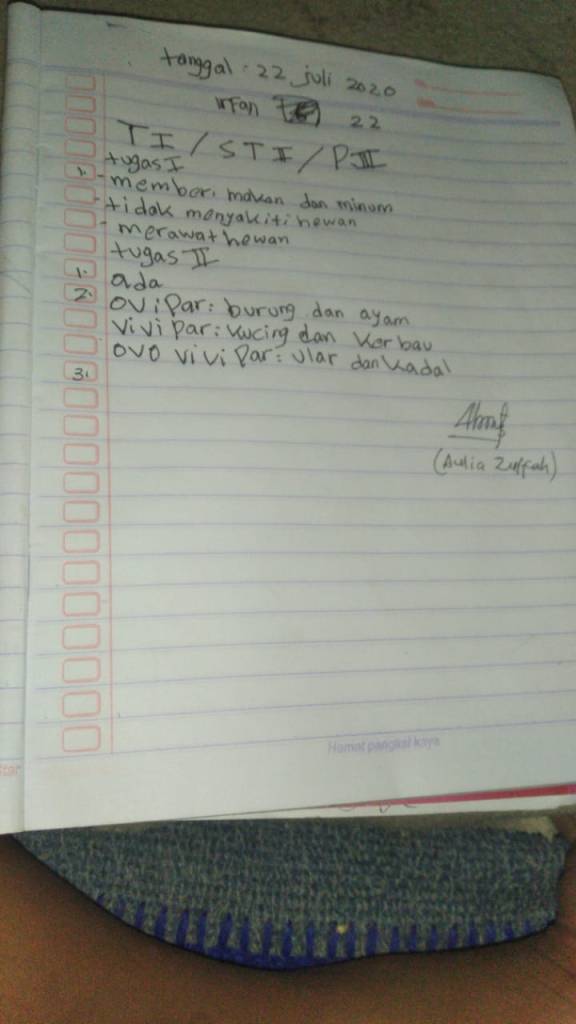 tanggal : 22 juli 2020
irfan 22
TI / STI / PIII
tugas I
1. - memberi makan dan minum
- tidak menyakiti hewan
- merawat hewan
tugas II
1. ada
2. ovipar: burung dan ayam
vivipar: kucing dan kerbau
ovo vivipar: ular dan kadal
3.
(Aulia Zulfah)
Hemat pangkal kaya